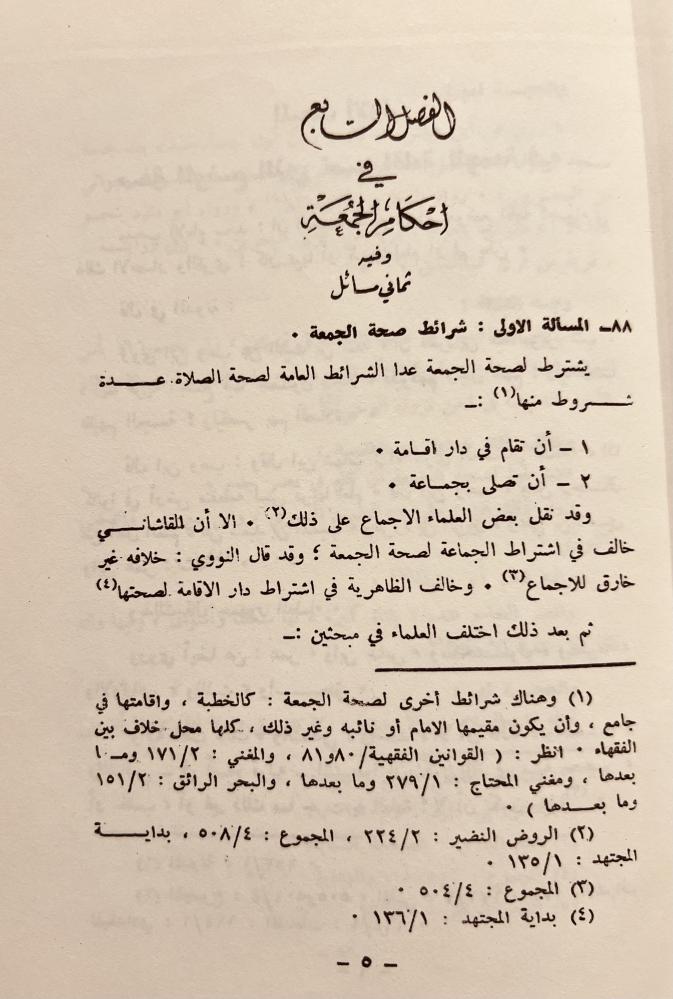 الفصل السابع
في
أحكام الجمعة
وفيه
ثماني مسائل
٨٨ـ المسألة الاولى : شرائط صحة الجمعة ٠
يشترط لصحة الجمعة عدا الشرائط العامة لصحة الصلاة عــدة
شــروط منها(١) :ـ
١ ـ أن تقام في دار اقامة ٠
٢ ـ أن تصلى بجماعة ٠
وقد نقل بعض العلماء الاجماع على ذلك(٢) ٠ الا أن المقاشانــي
خالف في اشتراط الجماعة لصحة الجمعة ؛ وقد قال النووي : خلافه غير
خارق للاجماع(٣) ٠ وخالف الظاهرية في اشتراط دار الاقامة لصحتها(٤)
ثم بعد ذلك اختلف العلماء في مبحثين :ـ
(١) وهناك شرائط أخرى لصحة الجمعة : كالخطبة ، واقامتها في
جامع ، وأن يكون مقيمها الامام أو نائبه وغير ذلك ، كلها محل خلاف بين
الفقهاء ٠ انظر : ( القوانين الفقهية/٨٠و٨١ ، والمغني : ١٧١/٢ ومــا
بعدها ، ومغني المحتاج : ٢٧٩/١ وما بعدها ، والبحر الرائق : ١٥١/٢
وما بعــدها ) ٠
(٢) الروض النضير : ٢٢٤/٢ ، المجموع : ٥٠٨/٤ ، بدايــة
المجتهد : ١٣٥/١ ٠
(٣) المجموع : ٥٠٤/٤ ٠
(٤) بداية المجتهد : ١٣٦/١ ٠
ـ ٥ ـ